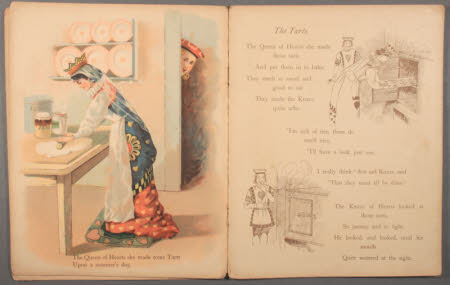 The Queen of Hearts she made some Tarts
Upon a summer's day.
The Tarts.
The Queen of Hearts she made
those tarts,
And put them in to bake;
They smelt so sweet and
good to eat
They made the Knave
quite
"I'm sick of rice, those do
smell nice,
"I'll have a look, just one,
"I really think" that sad Knave,
"That they must all be done."
The Knave of Hearts looked at
those tarts,
So jammy and so light,
He looked, and looked, until his
mouth
Quite watered at the sight.